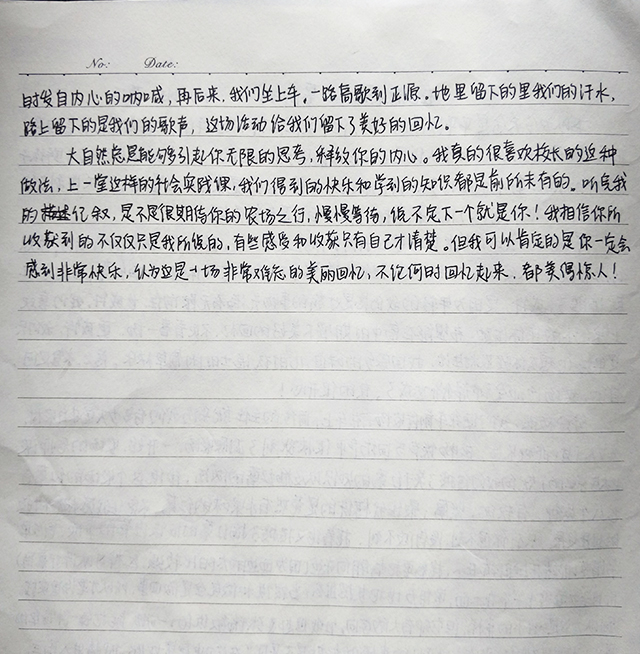 No: Date:
时发自内心的呐喊,再后来,我们坐上车,一路高歌到正源。地里留下的里我们的汗水,
路上留下的是我们的歌声,这场活动给我们留下了美好的回忆。
大自然总是能够引起你无限的思考,释放你的内心。我真的很喜欢校长的这种
做法,上一堂这样的社会实践课,我们得到的快乐和学到的知识都是前所未有的。听完我
的忆叙,是不是很期待你的农场之行,慢慢等待,说不定下一个就是你!我相信你所
收获到的不仅仅只是我所说的,有些感受和收获只有自己才清楚。但我可以肯定的是你一定会
感到非常快乐,认为这是一场非常难忘的美丽回忆,不论何时回忆起来,都美偶惊人!